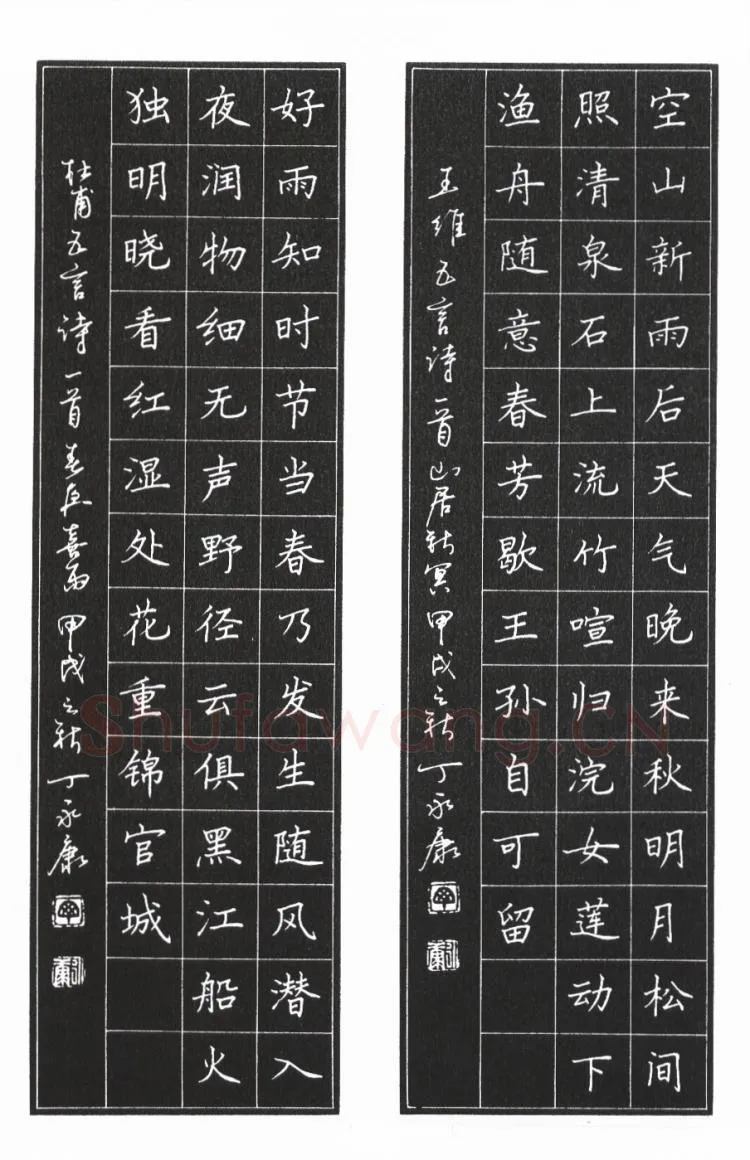 空山新雨后天气晚来秋明月松间
照清泉石上流竹喧归浣女莲动下
渔舟随意春芳歇王孙自可留
王维五言诗一首山居秋冥甲戌之秋丁永康
好雨知时节当春乃发生随风潜入
夜润物细无声野径云俱黑江船火
独明晓看红湿处花重锦官城
杜甫五言诗一首春夜喜雨甲戌之秋丁永康
Shufawang.CN